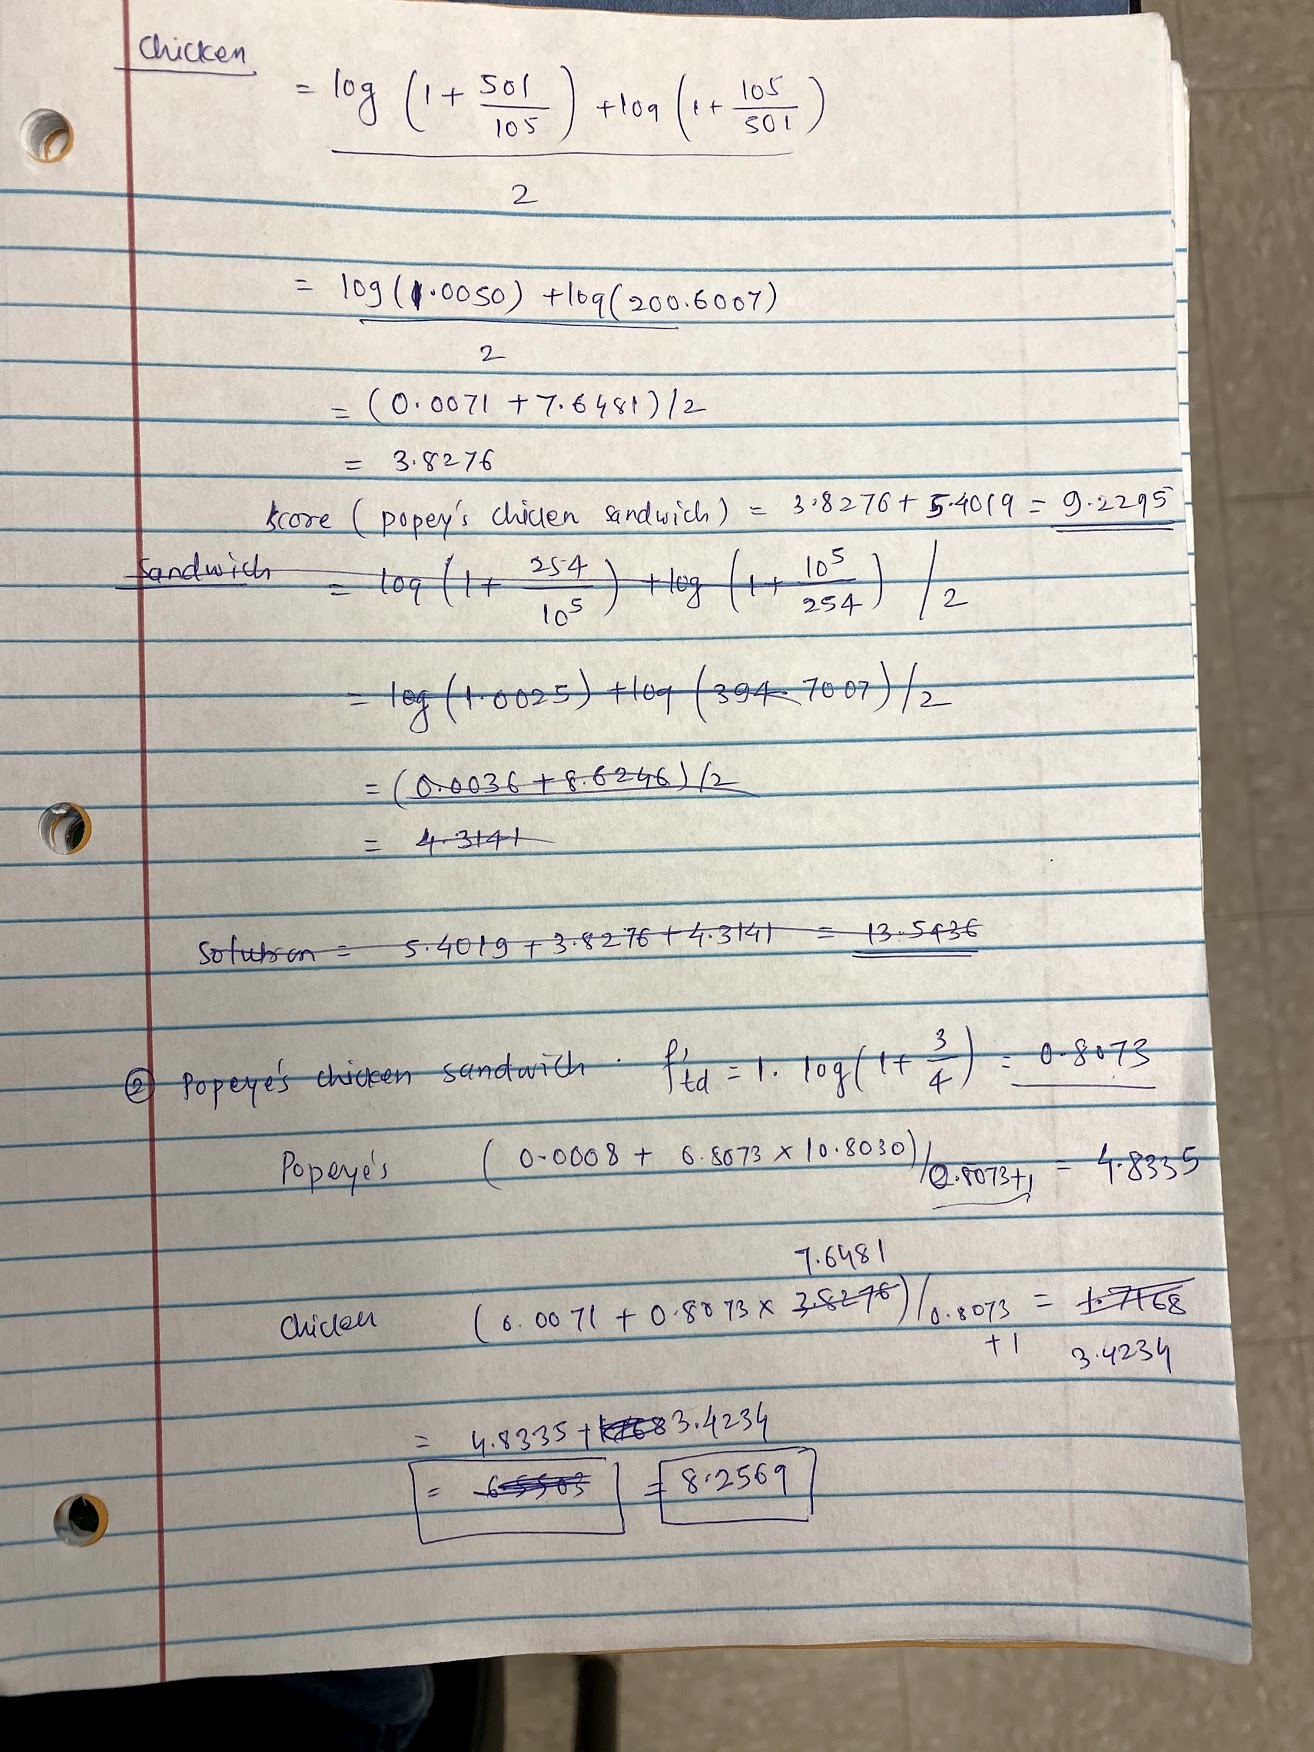 Chicken
= log (1 + 501/10^5) + log (1 + 10^5/501)
2
= log(1.0050) + log(200.6007)
2
= (0.0071 + 7.6481)/2
= 3.8276
Score (popey's chicken sandwich) = 3.8276 + 5.4019 = 9.2295
Sandwich = log (1 + 254/10^5) + log (1 + 10^5/254) / 2
= log (1.0025) + log (394.7007)/2
= (0.0036 + 8.6246)/2
= 4.3141
Solution = 5.4019 + 3.8276 + 4.3141 = 13.5436
② Popeye's chicken sandwich. f'td = 1. log(1 + 3/4) = 0.8073
Popeye's (0.0008 + 0.8073 x 10.8030)/0.8073+1 = 4.8335
7.6481
Chicken (0.0071 + 0.8073 x 3.8276)/0.8073 +1 = 1.7168
3.4234
= 4.8335 + 3.4234
= = 8.2569